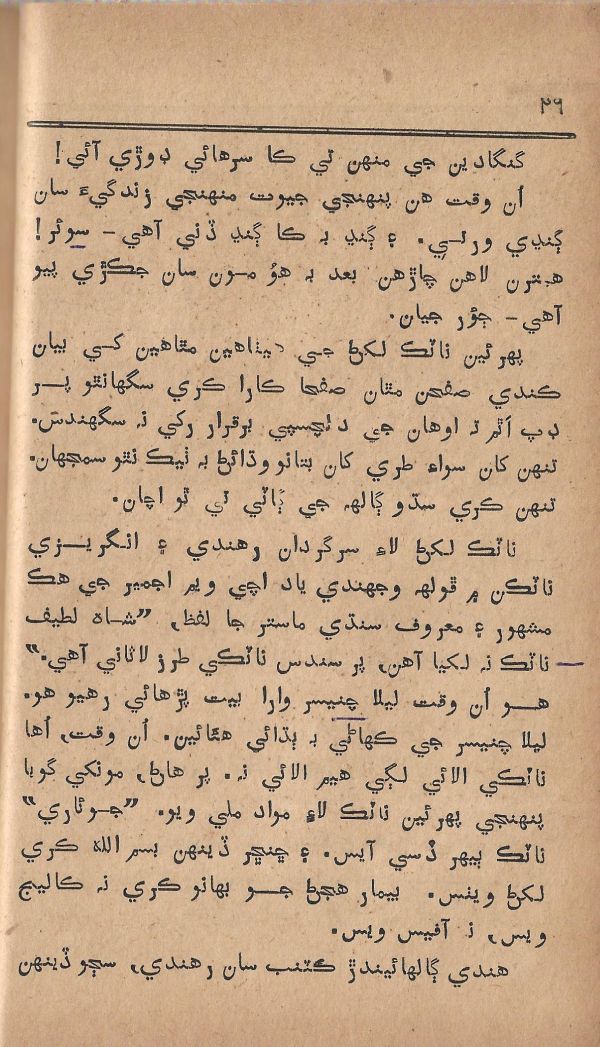 ۳۹
گنگادين جي منهن تي ڪا سرهائي ڊوڙي آئي!
اُن وقت هن پنهنجي جيوت منهنجي زندگيءَ سان
ڳنڍي ورتي. ۽ ڳنڍ بہ ڪا ڳنڍ ڏني آهي – سوئر!
هيترن لاهن چاڙهن بعد بہ هوُ مون سان جڪڙي پيو
آهي – ڄؤر جيان.
پهرئين ناٽڪ لکڻ جي هيٺاهين مٿاهين کي بيان
ڪندي صفحن مٿان صفحا ڪارا ڪري سگهانٿو پر
ڊپ اٿم تہ اوهان جي دلچسپي برقرار رکي نہ سگهندس.
تنهن کان سواءِ طري کان بتانو وڌائڻ بہ ٺيڪ نٿو سمجهان.
تنهن ڪري سڌو ڳالهہ جي ڳاٽي تي ٿو اچان.
ناٽڪ لکڻ لاءِ سرگردان رهندي ۽ انگريزي
ناٽڪن ۾ ڦولهہ وجهندي ياد اچي ويم اجمير جي هڪ
مشهور ۽ معروف سنڌي ماستر جا لفظ، ”شاه لطيف
ناٽڪ نہ لکيا آهن، پر سندس ناٽڪي طرز لاثاني آهي.“
هو اُن وقت ليلا چنيسر وارا بيت پڙهائي رهيو هو.
ليلا چنيسر جي ڪهاڻي بہ ٻڌائي هئائين. اُن وقت، اُها
ناٽڪي الائي لڳي هيم الائي نہ. پر هاڻ، مونکي گويا
پنهنجي پهرئين ناٽڪ لاءِ مواد ملي ويو. ”جوئاري“
ناٽڪ ٻيهر ڏسي آيس. ۽ ڇنڇر ڏينهن بسم الله ڪري
لکڻ ويٺس. بيمار هجڻ جو بهانو ڪري نہ ڪاليج
ويس، نہ آفيس ويس.
هندي ڳالهائيندڙ ڪٽنب سان رهندي، سڄو ڏينهن